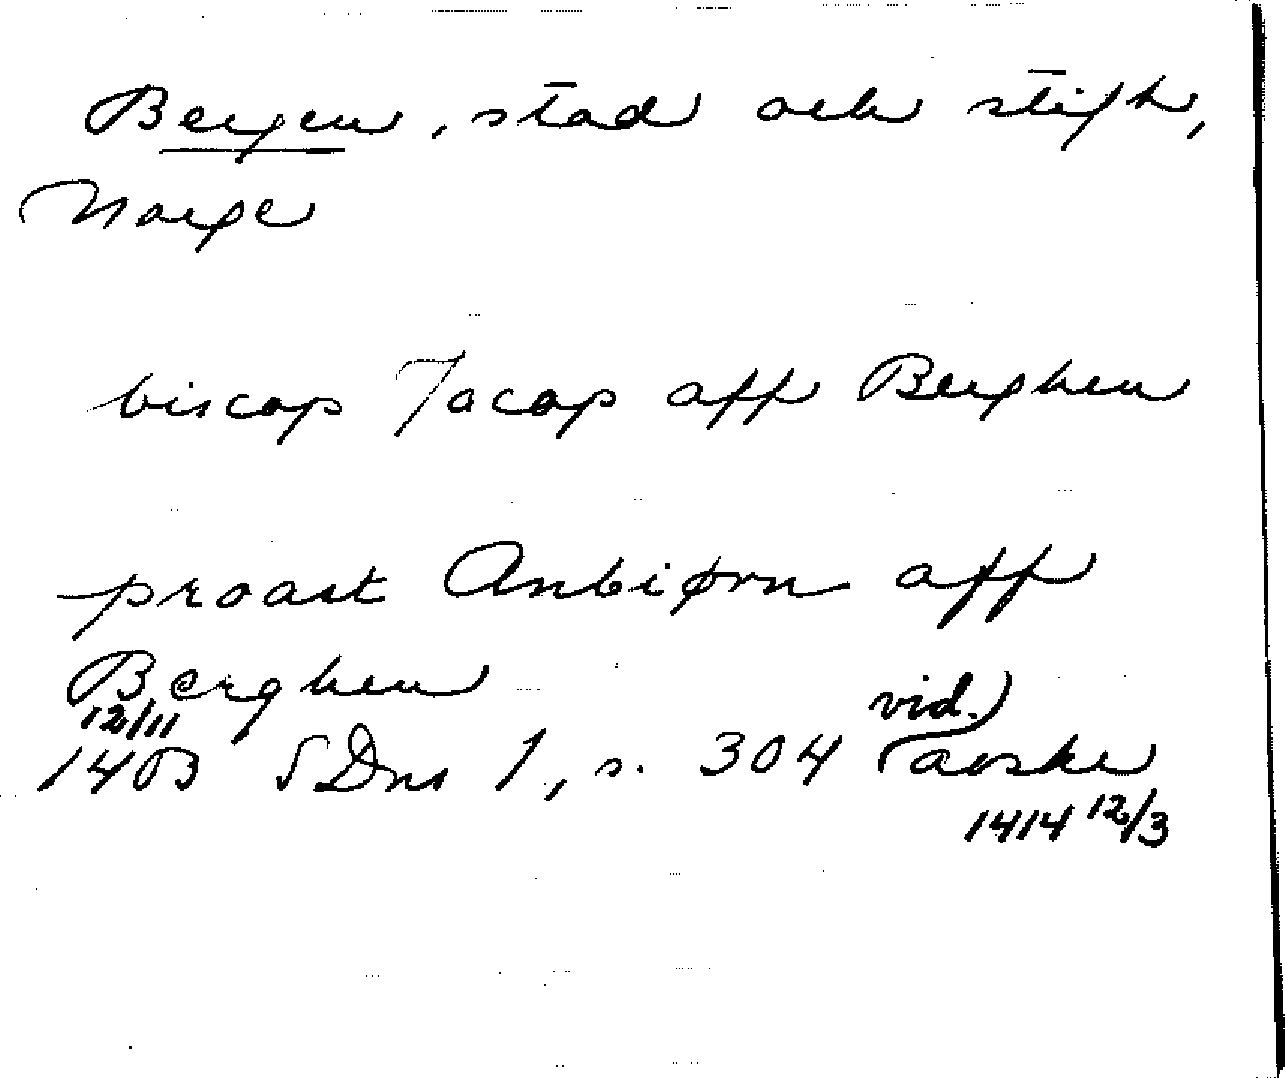 Bergen, stad och stift,
Norge
biscop Jacop aff Berghen
proast Anbiørn aff
Berghen
12/11 vid.
1413 SDns 1, s. 304 avskr
1414 12/3